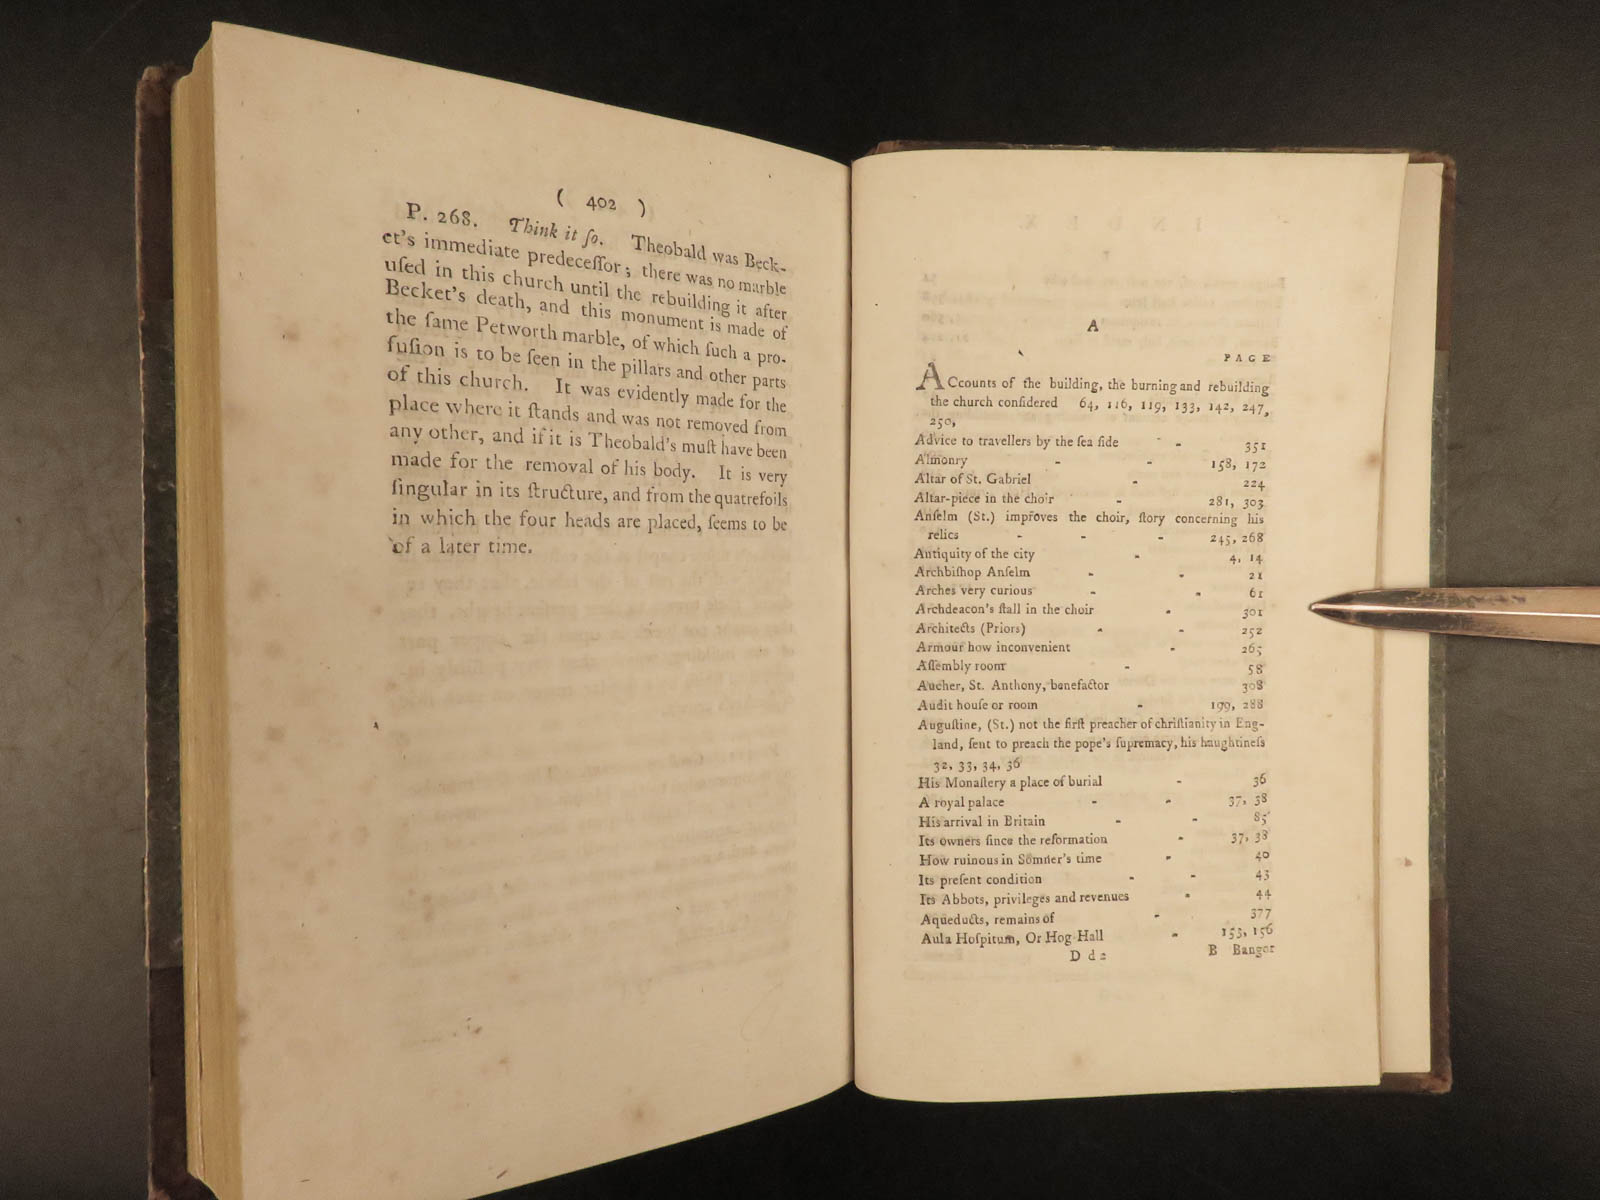 ( 402 )
P. 268. Think it ſo. Theobald was Beck-
et's immediate predeceſſor; there was no marble
uſed in this church until the rebuilding it after
Becket's death, and this monument is made of
the ſame Petworth marble, of which ſuch a pro-
fuſion is to be ſeen in the pillars and other parts
of this church. It was evidently made for the
place where it ſtands and was not removed from
any other, and if it is Theobald's muſt have been
made for the removal of his body. It is very
ſingular in its ſtructure, and from the quatrefoils
in which the four heads are placed, ſeems to be
of a later time.
A
PAGE
ACcounts of the building, the burning and rebuilding
the church conſidered 64, 116, 119, 133, 142, 247,
250,
Advice to travellers by the ſea ſide - - 351
Almonry - - 158, 172
Altar of St. Gabriel - 224
Altar-piece in the choir - 281, 303
Anſelm (St.) improves the choir, ſtory concerning his
relics - - - 245, 268
Antiquity of the city - 4, 14
Archbiſhop Anſelm - - 21
Arches very curious - - 61
Archdeacon's ſtall in the choir - 301
Architects (Priors) - - 252
Armour how inconvenient - 265
Aſſembly room - 58
Aucher, St. Anthony, benefactor 308
Audit houſe or room - 199, 288
Auguſtine, (St.) not the firſt preacher of chriſtianity in Eng-
land, ſent to preach the pope's ſupremacy, his haughtineſs
32, 33, 34, 36
His Monaſtery a place of burial - 36
A royal palace - - 37, 38
His arrival in Britain - - 85
Its owners ſince the reformation - 37, 38
How ruinous in Somner's time - 40
Its preſent condition - - 43
Its Abbots, privileges and revenues - 44
Aqueducts, remains of - 377
Aula Hoſpitum, Or Hog Hall - 153, 156
D d 2 B Bangor